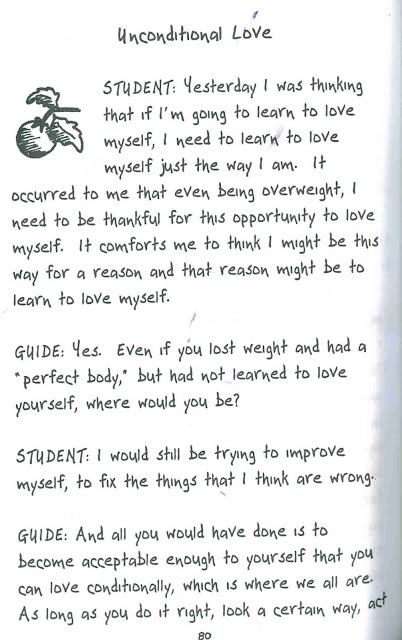 Unconditional Love
STUDENT: Yesterday I was thinking
that if I'm going to learn to love
myself, I need to learn to love
myself just the way I am. It
occurred to me that even being overweight, I
need to be thankful for this opportunity to love
myself. It comforts me to think I might be this
way for a reason and that reason might be to
learn to love myself.
GUIDE: Yes. Even if you lost weight and had a
"perfect body," but had not learned to love
yourself, where would you be?
STUDENT: I would still be trying to improve
myself, to fix the things that I think are wrong.
GUIDE: And all you would have done is to
become acceptable enough to yourself that you
can love conditionally, which is where we all are.
As long as you do it right, look a certain way, act
80